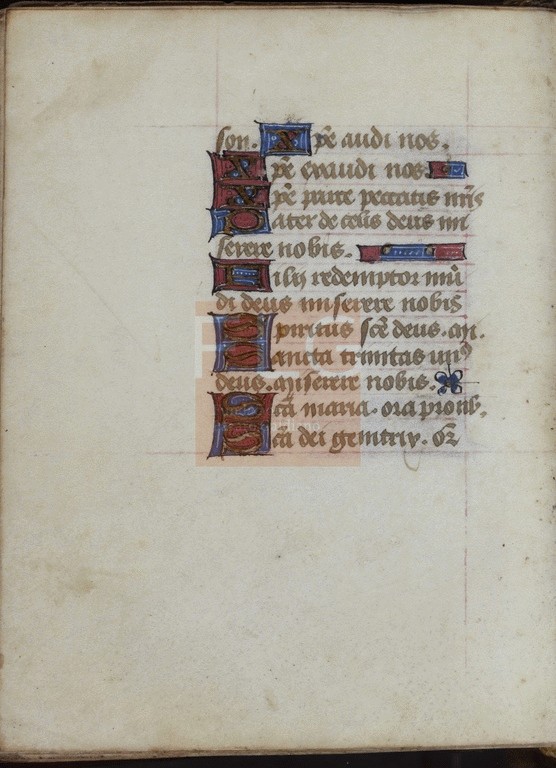 son. Xpe audi nos.
Xpe exaudi nos
Xpe parce peccatis nr̄is
Pater de celis deus mi
serere nobis.
Filij redemptor mū
di deus miserere nobis
Spiritus sc̄e deus. m.
Sancta trinitas unꝰ
deus. miserere nobis.
Sc̄a maria. ora pro nob.
Sc̄a dei genitrix. or̄